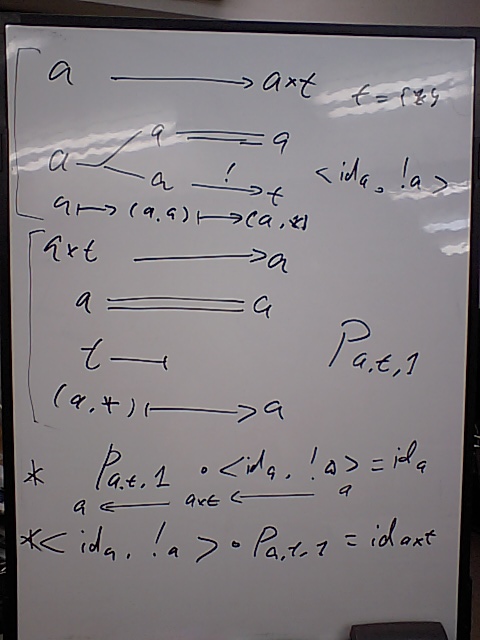 a → a×t t = {*}
a = a
a
a →! t <id_a, !a>
a ↦ (a,a) ↦ (a,*)
a×t → a
a = a
t ⟼ P_{a,t,1}
(a,*) ↦ a
* P_{a,t,1} ∘ <id_a, !a> = id_a
a ← a×t ← a
* <id_a, !a> ∘ P_{a,t,1} = id_{a×t}